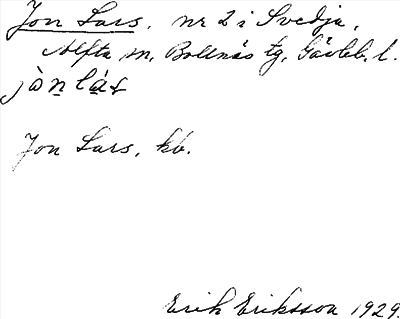 Jon Lars, nr 2 i Svedja,
Alfta sn, Bollnäs tg, Gävleb. l.
jò̱n la̱s
Jon Lars, kb.
Erik Eriksson 1929.